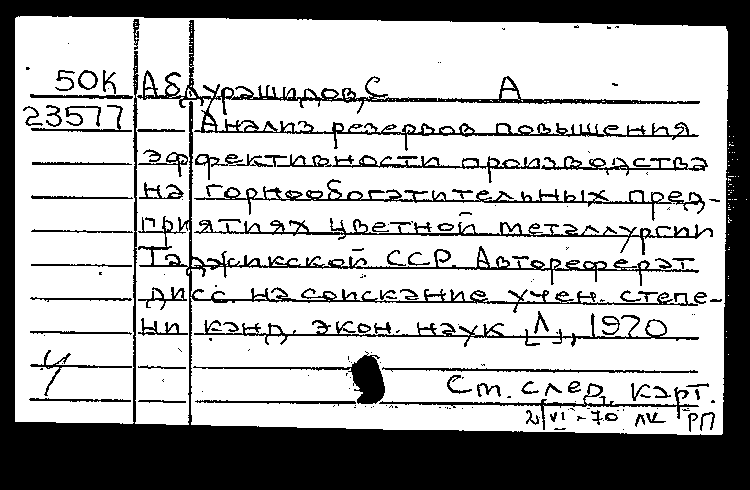 50К Абдурашидов, С А
23577 Анализ резервов повышения
эффективности производства
на горнообогатительных пред-
приятиях цветной металлургии
Таджикской ССР. Автореферат
дисс. на соискание учен. степе-
ни канд. экон. наук [Л], 1970
У
См. след. карт.
2/VI-70 ЛК РП